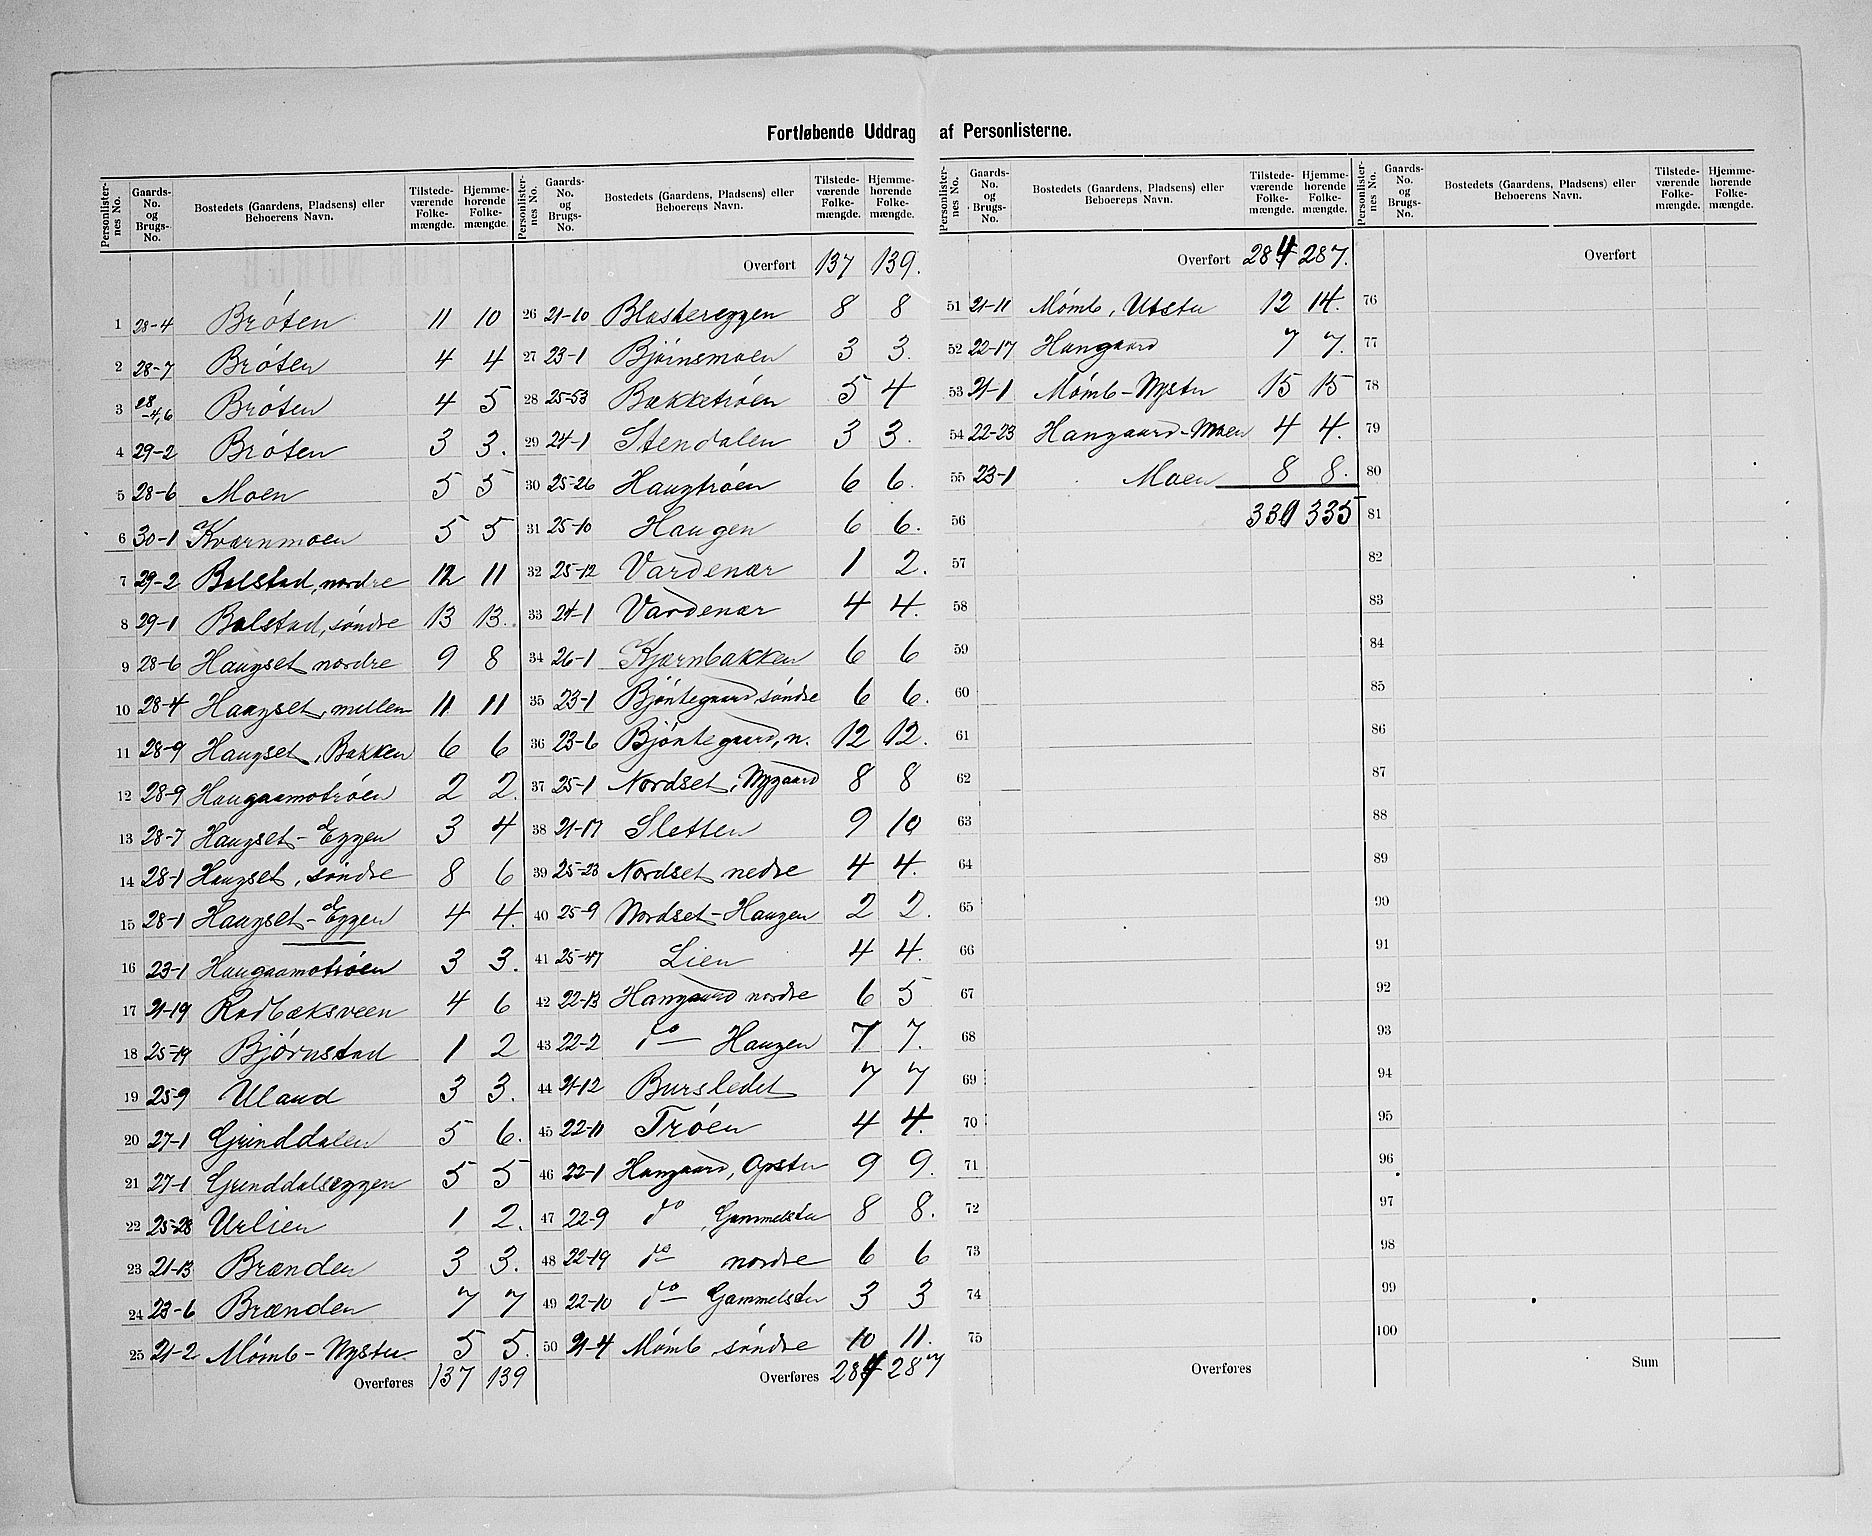 Fortløbende Uddrag af Personlisterne.
Personlisternes No. Gaards-No. og Brugs-No. Bostedets (Gaardens, Pladsens) eller Beboerens Navn. Tilstedeværende Folkemængde. Hjemmehørende Folkemængde.
1 28-4 Bröten 11 10
2 28-7 Bröten 4 4
3 28-4,6 Bröten 4 5
4 29-2 Bröten 3 3.
5 28-6 Moen 5 5
6 30-1 Kværnmoen 5 5
7 29-2 Bolstad, nordre 12 11
8 29-1 Bolstad, söndre 13 13.
9 28-6 Haugset nordre 9 8
10 28-4 Haugset, mellem 11 11
11 28-9 Haugset, Bakken 6 6
12 28-9 Haugaamotröen 2 2.
13 28-7 Haugset-Eggen 3 4
14 28-1 Haugset, söndre 8 6
15 28-1 Haugset-Eggen 4 4.
16 23-1 Haugaamotröen 3 3.
17 21-19 Rödbæksveen 4 6
18 25-19 Björnstad 1 2
19 25-9 Uland 3 3.
20 27-1 Grinddalen 5 6.
21 27-1 Grinddalseggen 5 5
22 25-28 Urlien 1 2.
23 21-13 Brænden 3 3.
24 23-6 Brænden 7 7
25 21-2 Mömb-Nystu 5 5.
Overføres 137 139
Personlisternes No. Gaards-No. og Brugs-No. Bostedets (Gaardens, Pladsens) eller Beboerens Navn. Tilstedeværende Folkemængde. Hjemmehørende Folkemængde.
Overført 137 139.
26 21-10 Blostereggen 8 8
27 23-1 Björnsmoen 3 3.
28 25-53 Bækketröen 5 4
29 24-1 Stendalen 3 3.
30 25-26 Haugtröen 6 6.
31 25-10 Haugen 6 6.
32 25-12 Vardenær 1 2.
33 24-1 Vardenær 4 4.
34 26-1 Kjærnbakken 6 6
35 23-1 Björtegaard söndre 6 6.
36 23-6 Björtegaard, n. 12 12.
37 25-1 Nordset, Nygaard 8 8
38 21-17 Sletten 9 10
39 25-23 Nordset nedre 4 4.
40 25-9 Nordset-Haugen 2 2.
41 25-47 Lien 4 4.
42 22-13 Haugaard nordre 6 5
43 22-2 do Haugen 7 7.
44 21-12 Bursledet 7 7
45 22-11 Tröen 4 4.
46 22-1 Haugaard, Opstu 9 9.
47 22-9 do, Gammelstu 8 8.
48 22-19 do nordre 6 6
49 22-10 do Gammelstu 3 3
50 21-4 Mömb söndre 10 11.
Overføres 284 287
Personlisternes No. Gaards-No. og Brugs-No. Bostedets (Gaardens, Pladsens) eller Beboerens Navn. Tilstedeværende Folkemængde. Hjemmehørende Folkemængde.
Overført 284 287.
51 21-11 Mömb, Utstu 12 14.
52 22-17 Haugaard 7 7.
53 21-1 Mömb-Nystu 15 15
54 22-23 Haugaard-Moen 4 4.
55 23-1 Moen 8 8.
56 330 335
57
58
59
60
61
62
63
64
65
66
67
68
69
70
71
72
73
74
75
Overføres
Personlisternes No. Gaards-No. og Brugs-No. Bostedets (Gaardens, Pladsens) eller Beboerens Navn. Tilstedeværende Folkemængde. Hjemmehørende Folkemængde.
Overført
76
77
78
79
80
81
82
83
84
85
86
87
88
89
90
91
92
93
94
95
96
97
98
99
100
Sum